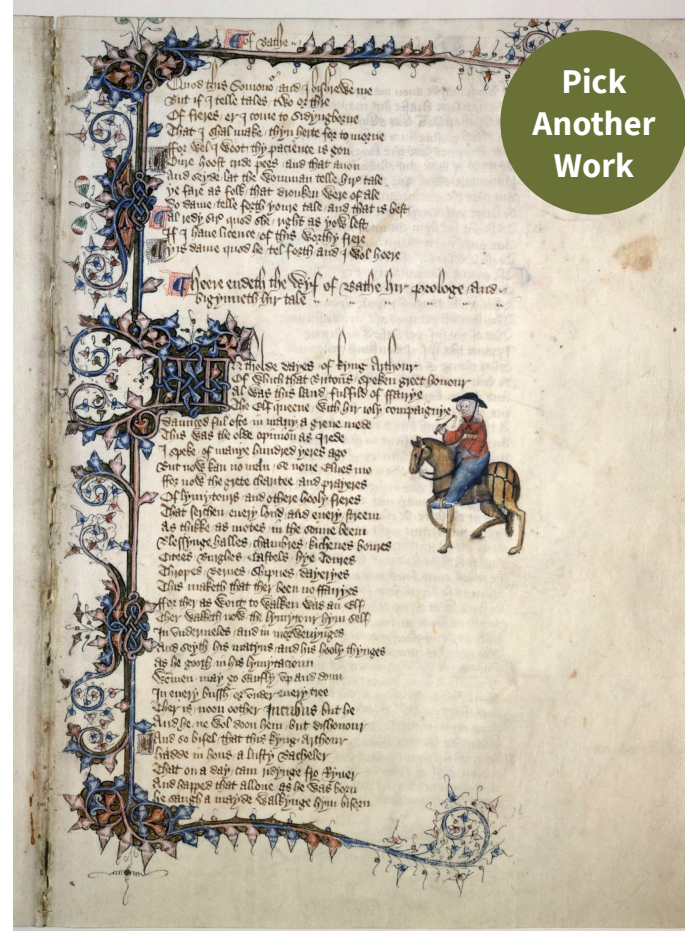 Pick
Another
Work
Of Bathe
Quod this Somono and I bishrewe me
But if I telle tales two or thre
Of freres er I come to Sidyngborne
That I shal make thyn herte for to morne
ffor wel I woot thy pacience is gon
Oure hoost cride pees and that anon
And seyde lat the womman telle hir tale
ye fare as folk that dronken were of ale
Do dame telle forth youre tale and that is best
Al redy sir quod she right as yow lest
If I have licence of this worthy frere
yis dame quod he tel forth and I wol heere
Heere endeth the Wyf of Bathe hir prologe and
bigynneth hir tale
In tholde dayes of kyng Arthour
Of which that Britons speken greet honour
Al was this land fulfild of ffairye
The Elf queene with hir ioly compaignye
daunced ful ofte in many a grene mede
This was the olde opinion as I rede
I speke of manye hundred yeres ago
But now kan no man se none Elves mo
ffor now the grete charitee and prayeres
Of lymytours and othere hooly freres
That serchen every lond and every streem
As thikke as motes in the sonne beem
Blessynge halles chambres kichenes boures
Citees Burghes Castels hye Toures
Thropes Bernes Shipnes dayeryes
This maketh that ther been no ffairyes
ffor ther as wont to walken was an Elf
Ther walketh now the lymytour hym self
In undermeles and in morwenynges
And seyth his matyns and his hooly thynges
As he gooth in his lymytacioun
Wommen may go saufly up and doun
In every bussh or under every tree
Ther is noon oother Incubus but he
And he ne wol doon hem but dishonour
And so bifel that this kyng Arthour
hadde in hous a lusty Bacheler
That on a day cam ridynge fro Ryver
And happed that allone as he was born
he saugh a mayde walkynge hym biforn